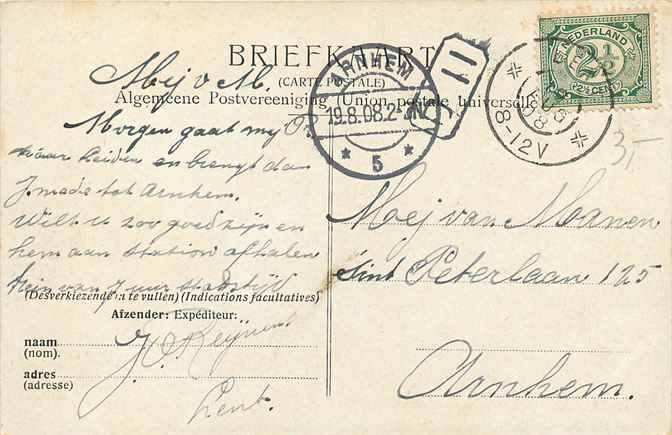 BRIEFKAART
(CARTE POSTALE)
Algemeene Postvereeniging (Union postale universelle)
NEDERLAND
2½
2½ CENT
8-12V
ARNHEM
19.8.08.2-
* 5 *
11
3,-
Mej v M.
Morgen gaat mijn
naar Leiden en brengt dan
J. mede tot Arnhem.
Wilt u zoo goed zijn en
hem aan station afhalen
trein van 7 uur stadstijd
(Desverkiezende in te vullen) (Indications facultatives)
Afzender: Expéditeur:
naam
(nom).
J.
adres
(adresse)
Lent.
Mej van Maanen
Sint Peterlaan 125
Arnhem.